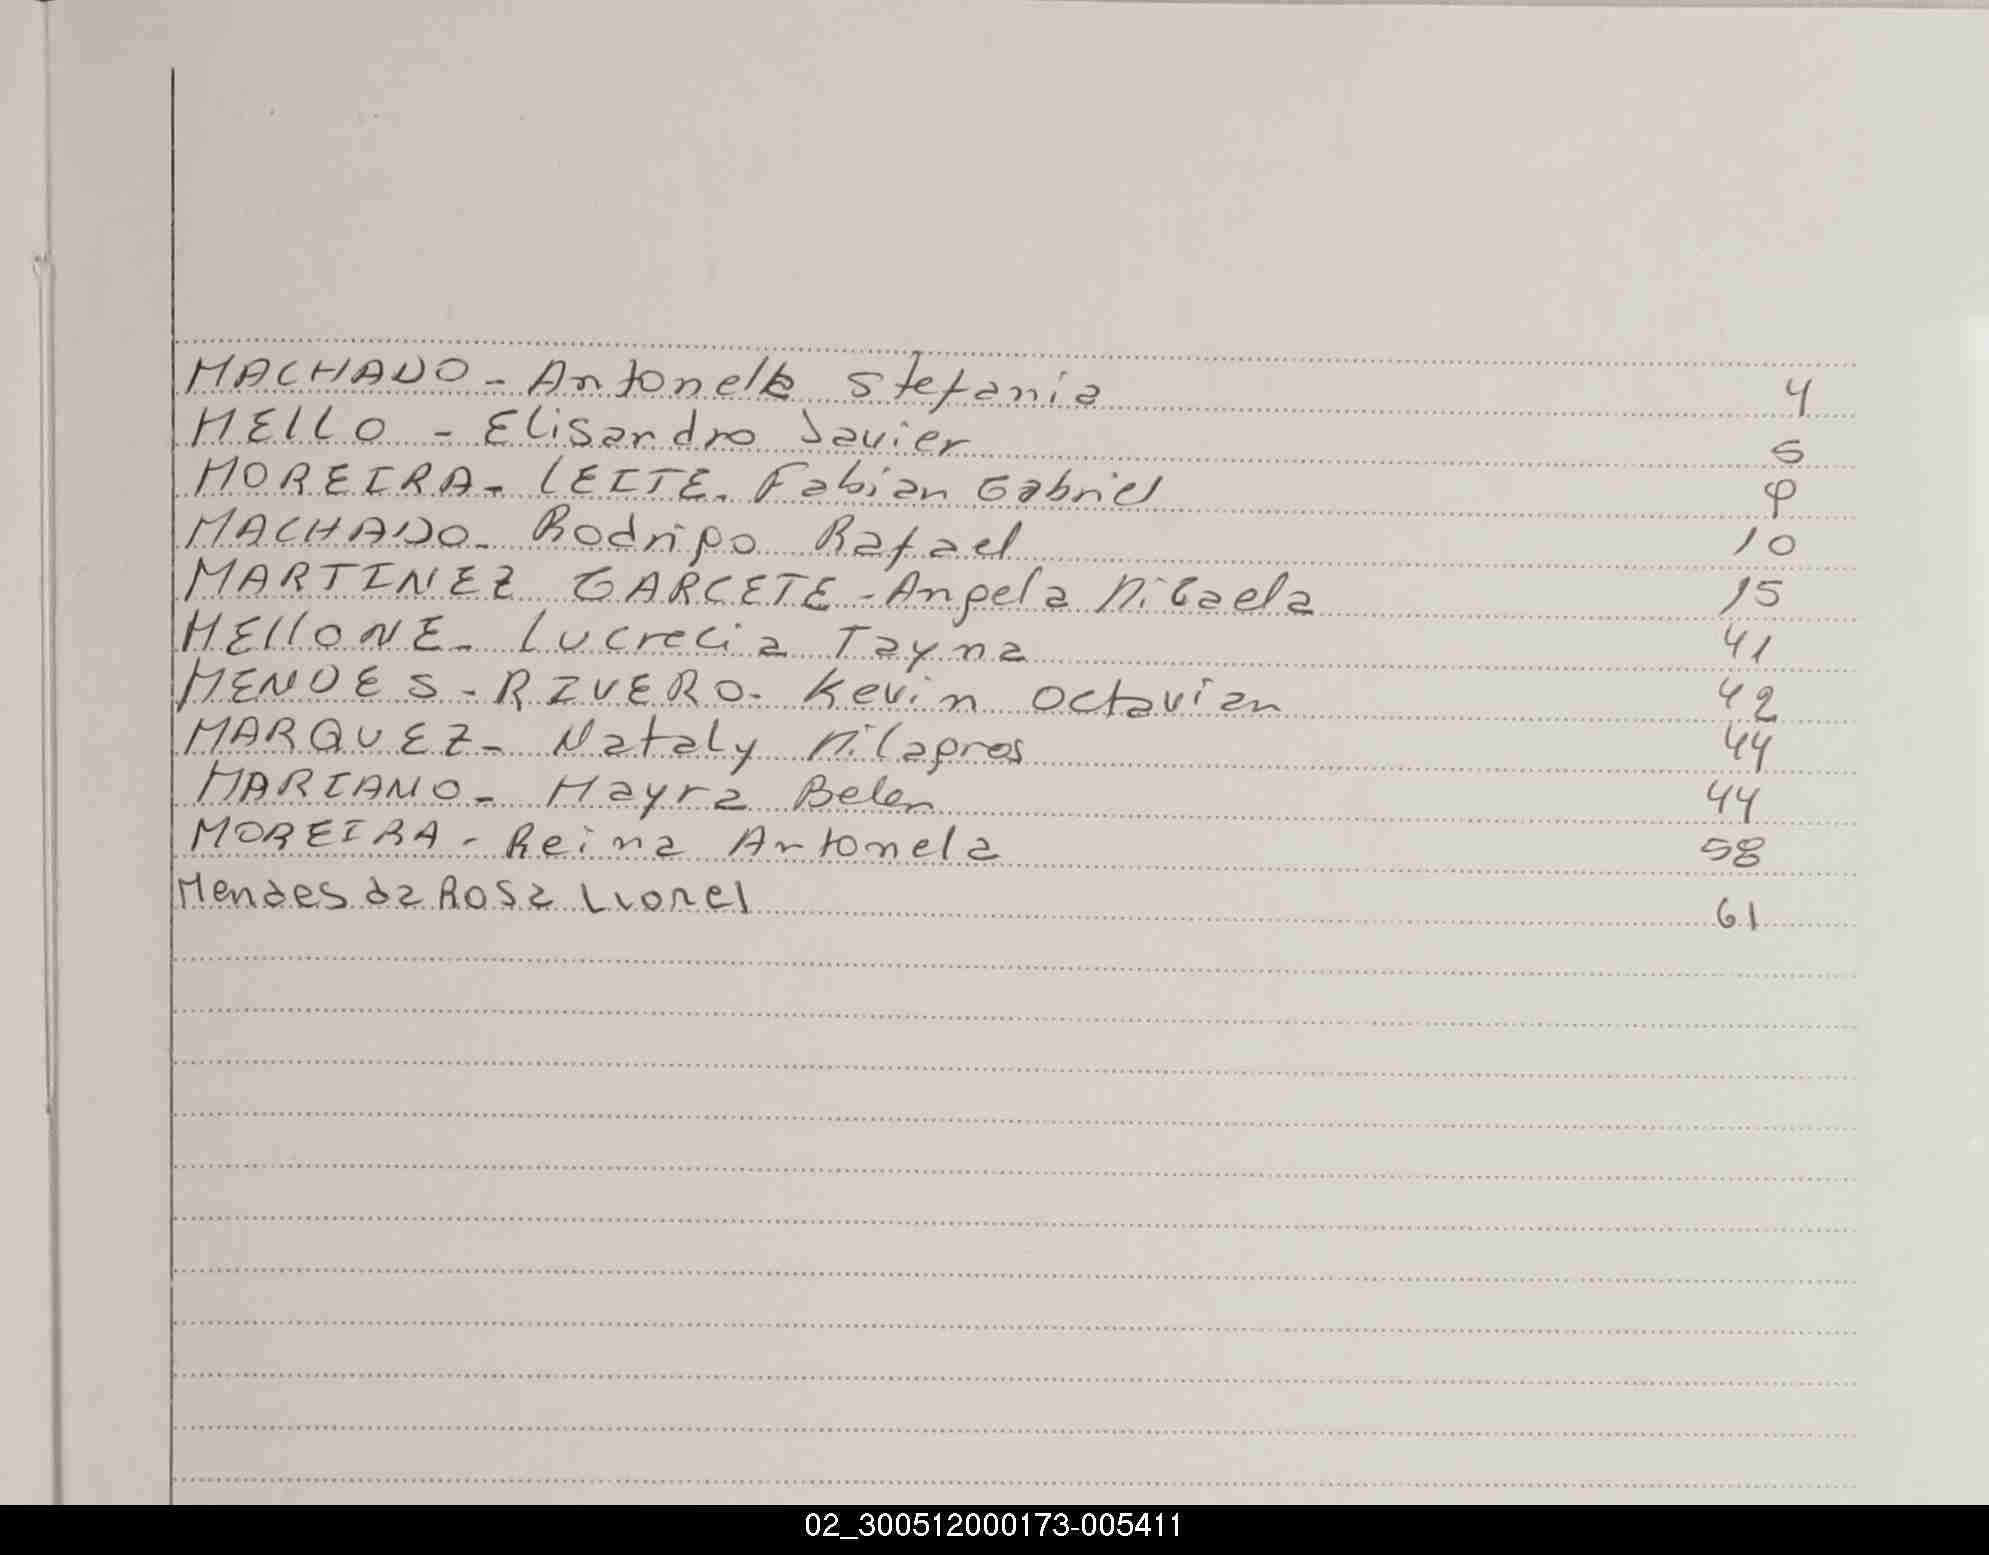 MACHADO - Antonella Stefania 4
MELLO - Elisandro Javier 5
MOREIRA - LEITE. Fabian Gabriel 9
MACHADO - Rodrigo Rafael 10
MARTINEZ GARCETE - Angela Micaela 15
MELLONE - Lucrecia Tayna 41
MENDES - RIVERO - Kevin Octavian 42
MARQUEZ - Nataly Milagros 44
MARIANO - Mayra Belen 44
MOREIRA - Reina Antonela 58
Mendes da Rosa Lionel 61
02_300512000173-005411